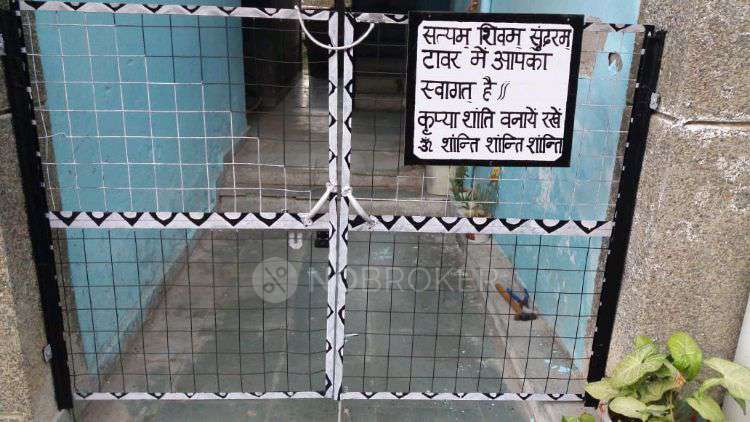 सत्यम् शिवम् सुंदरम्
टावर में आपका
स्वागत् है //
कृप्या शांति बनायें रखें
ॐ शांन्ति शांन्ति शांन्ति
NOBROKER